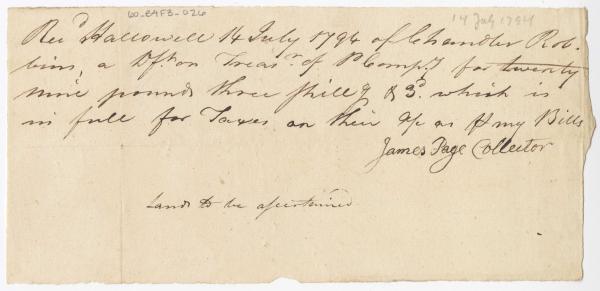 60-E4F3-026
14 July 1794
Rec.d Hallowell 14 July 1794 of Chandler Rob-
bins a Dft on Treas.r of P Comp.y for twenty
nine pounds three shillg & 3d. which is
in full for Taxes on their a/c as P my Bills
James Page Collector
Lands to be ascertained